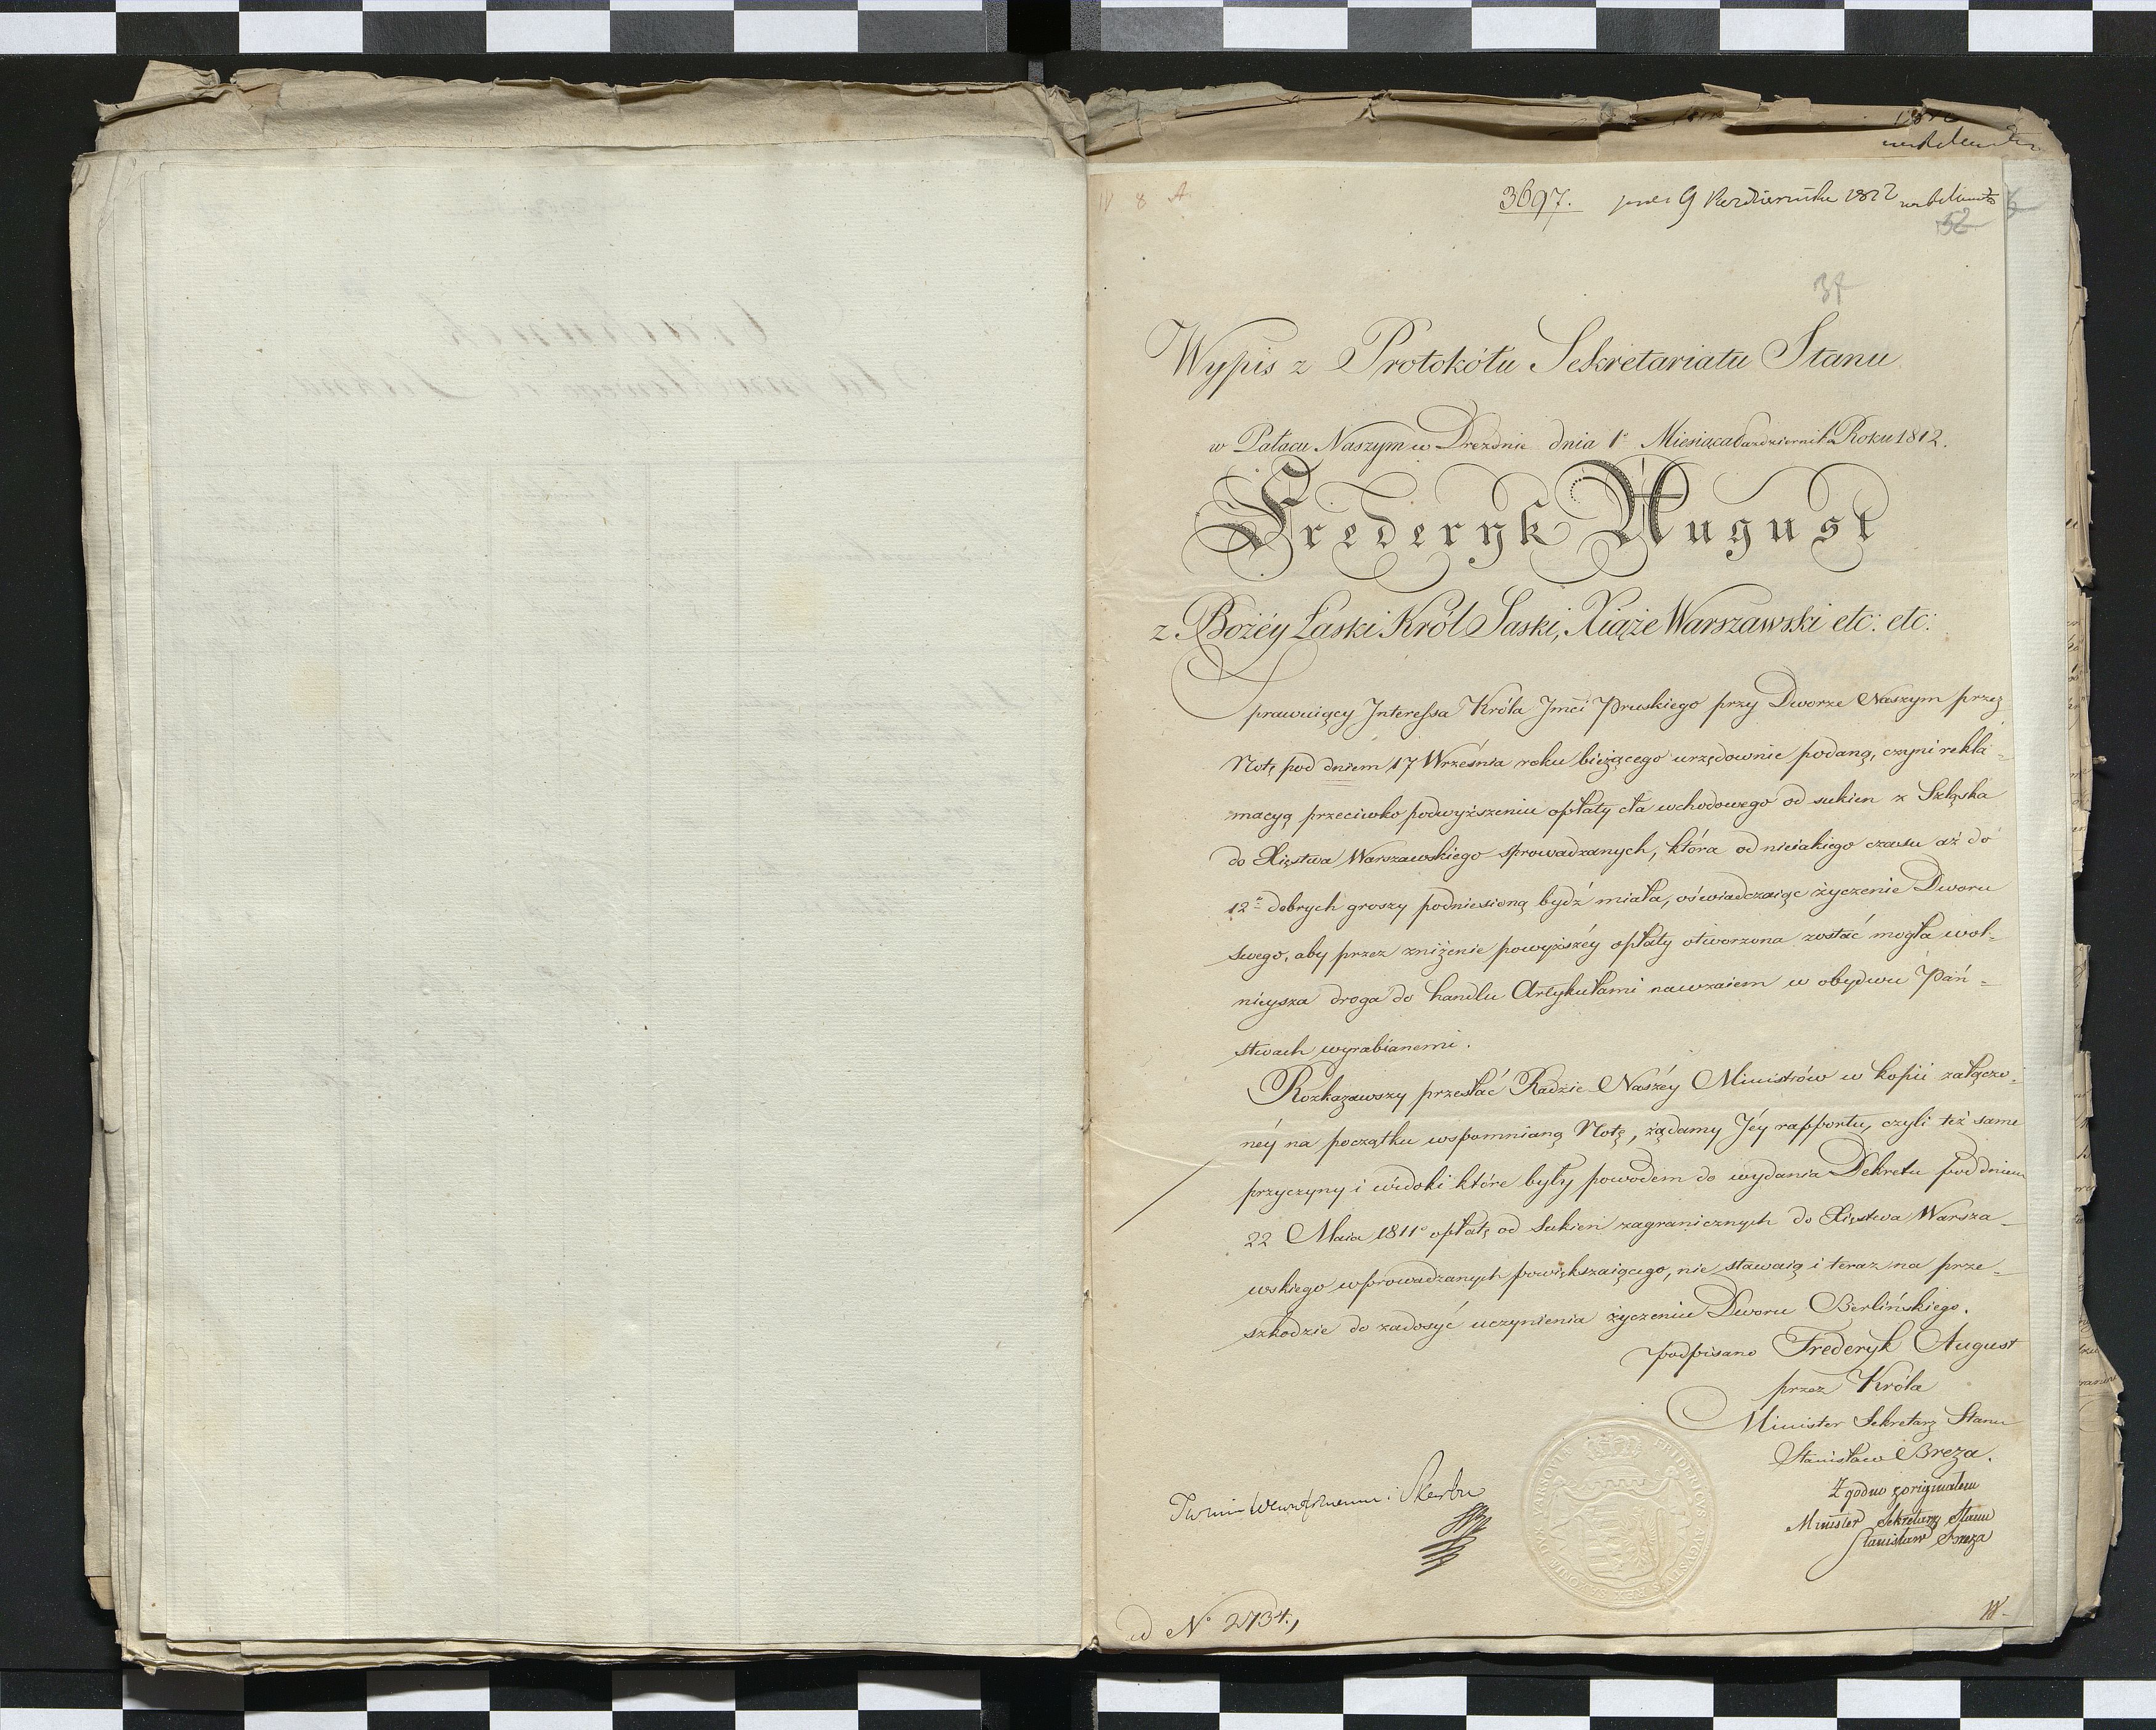 IV 8 A
3697. 9 Października 1812
52
37
Wypis z Protokółu Sekretariatu Stanu
w Pałacu Naszym w Dreznie dnia 1º Miesiąca Pazdziernika Roku 1812.
Frederyk August
z Bożéy Łaski Król Saski, Xiąże Warszawski etc: etc:
Sprawuiący Interessa Króla Jmci Pruskiego przy Dworze Naszym przez
Notę pod dniem 17 Września roku bieżącego urzędownie podaną, czyni rekla-
macyą przeciwko podwyższeniu opłaty cła wchodowego od sukien z Szląska
do Xięstwa Warszawskiego sprowadzanych, która od nieiakiego czasu aż do
12 dobrych groszy podniesioną bydź miała, oświadczaiąc życzenie Dworu
swego, aby przez zniżenie powyższéy opłaty otworzona zostać mogła wol-
nieysza droga do handlu Artykułami nawzaiem w obydwu Pań-
stwach wyrabianemi.
Rozkazawszy przesłać Radzie Naszéy Ministrów w kopii załączo-
néy na początku wspomnianą Notę, żądamy Jéy rapportu, czyli też same
przyczyny i widoki które były powodem do wydania Dekretu pod dniem
22 Maia 1811º opłatę od Sukien zagranicznych do Xięstwa Warsza-
wskiego wprowadzanych powiększaiącego, nie stawaią i teraz na prze-
szkodzie do zadosyć uczynienia życzeniu Dworu Berlińskiego.
podpisano Frederyk August
przez Króla
Minister Sekretarz Stanu
Stanisław Breza.
Zgodno z originałem
Minister Sekretarz Stanu
Stanisław Breza
i Skarbu
ad Nº 2734.